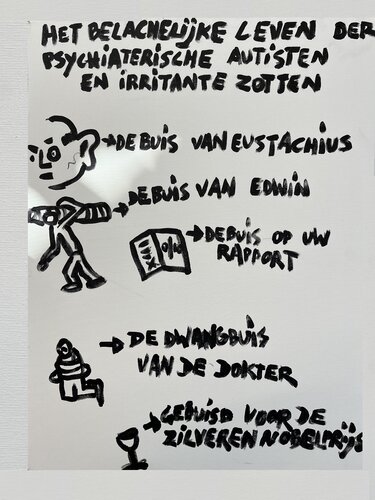 HET BELACHELIJKE LEVEN DER
PSYCHIATERISCHE AUTISTEN
EN IRRITANTE ZOTTEN
DE BUIS VAN EUSTACHIUS
DE BUIS VAN EDWIN
DE BUIS OP UW
RAPPORT
DE DWANGBUIS
VAN DE DOKTER
GEBUISD VOOR DE
ZILVEREN NOBELPRIJS